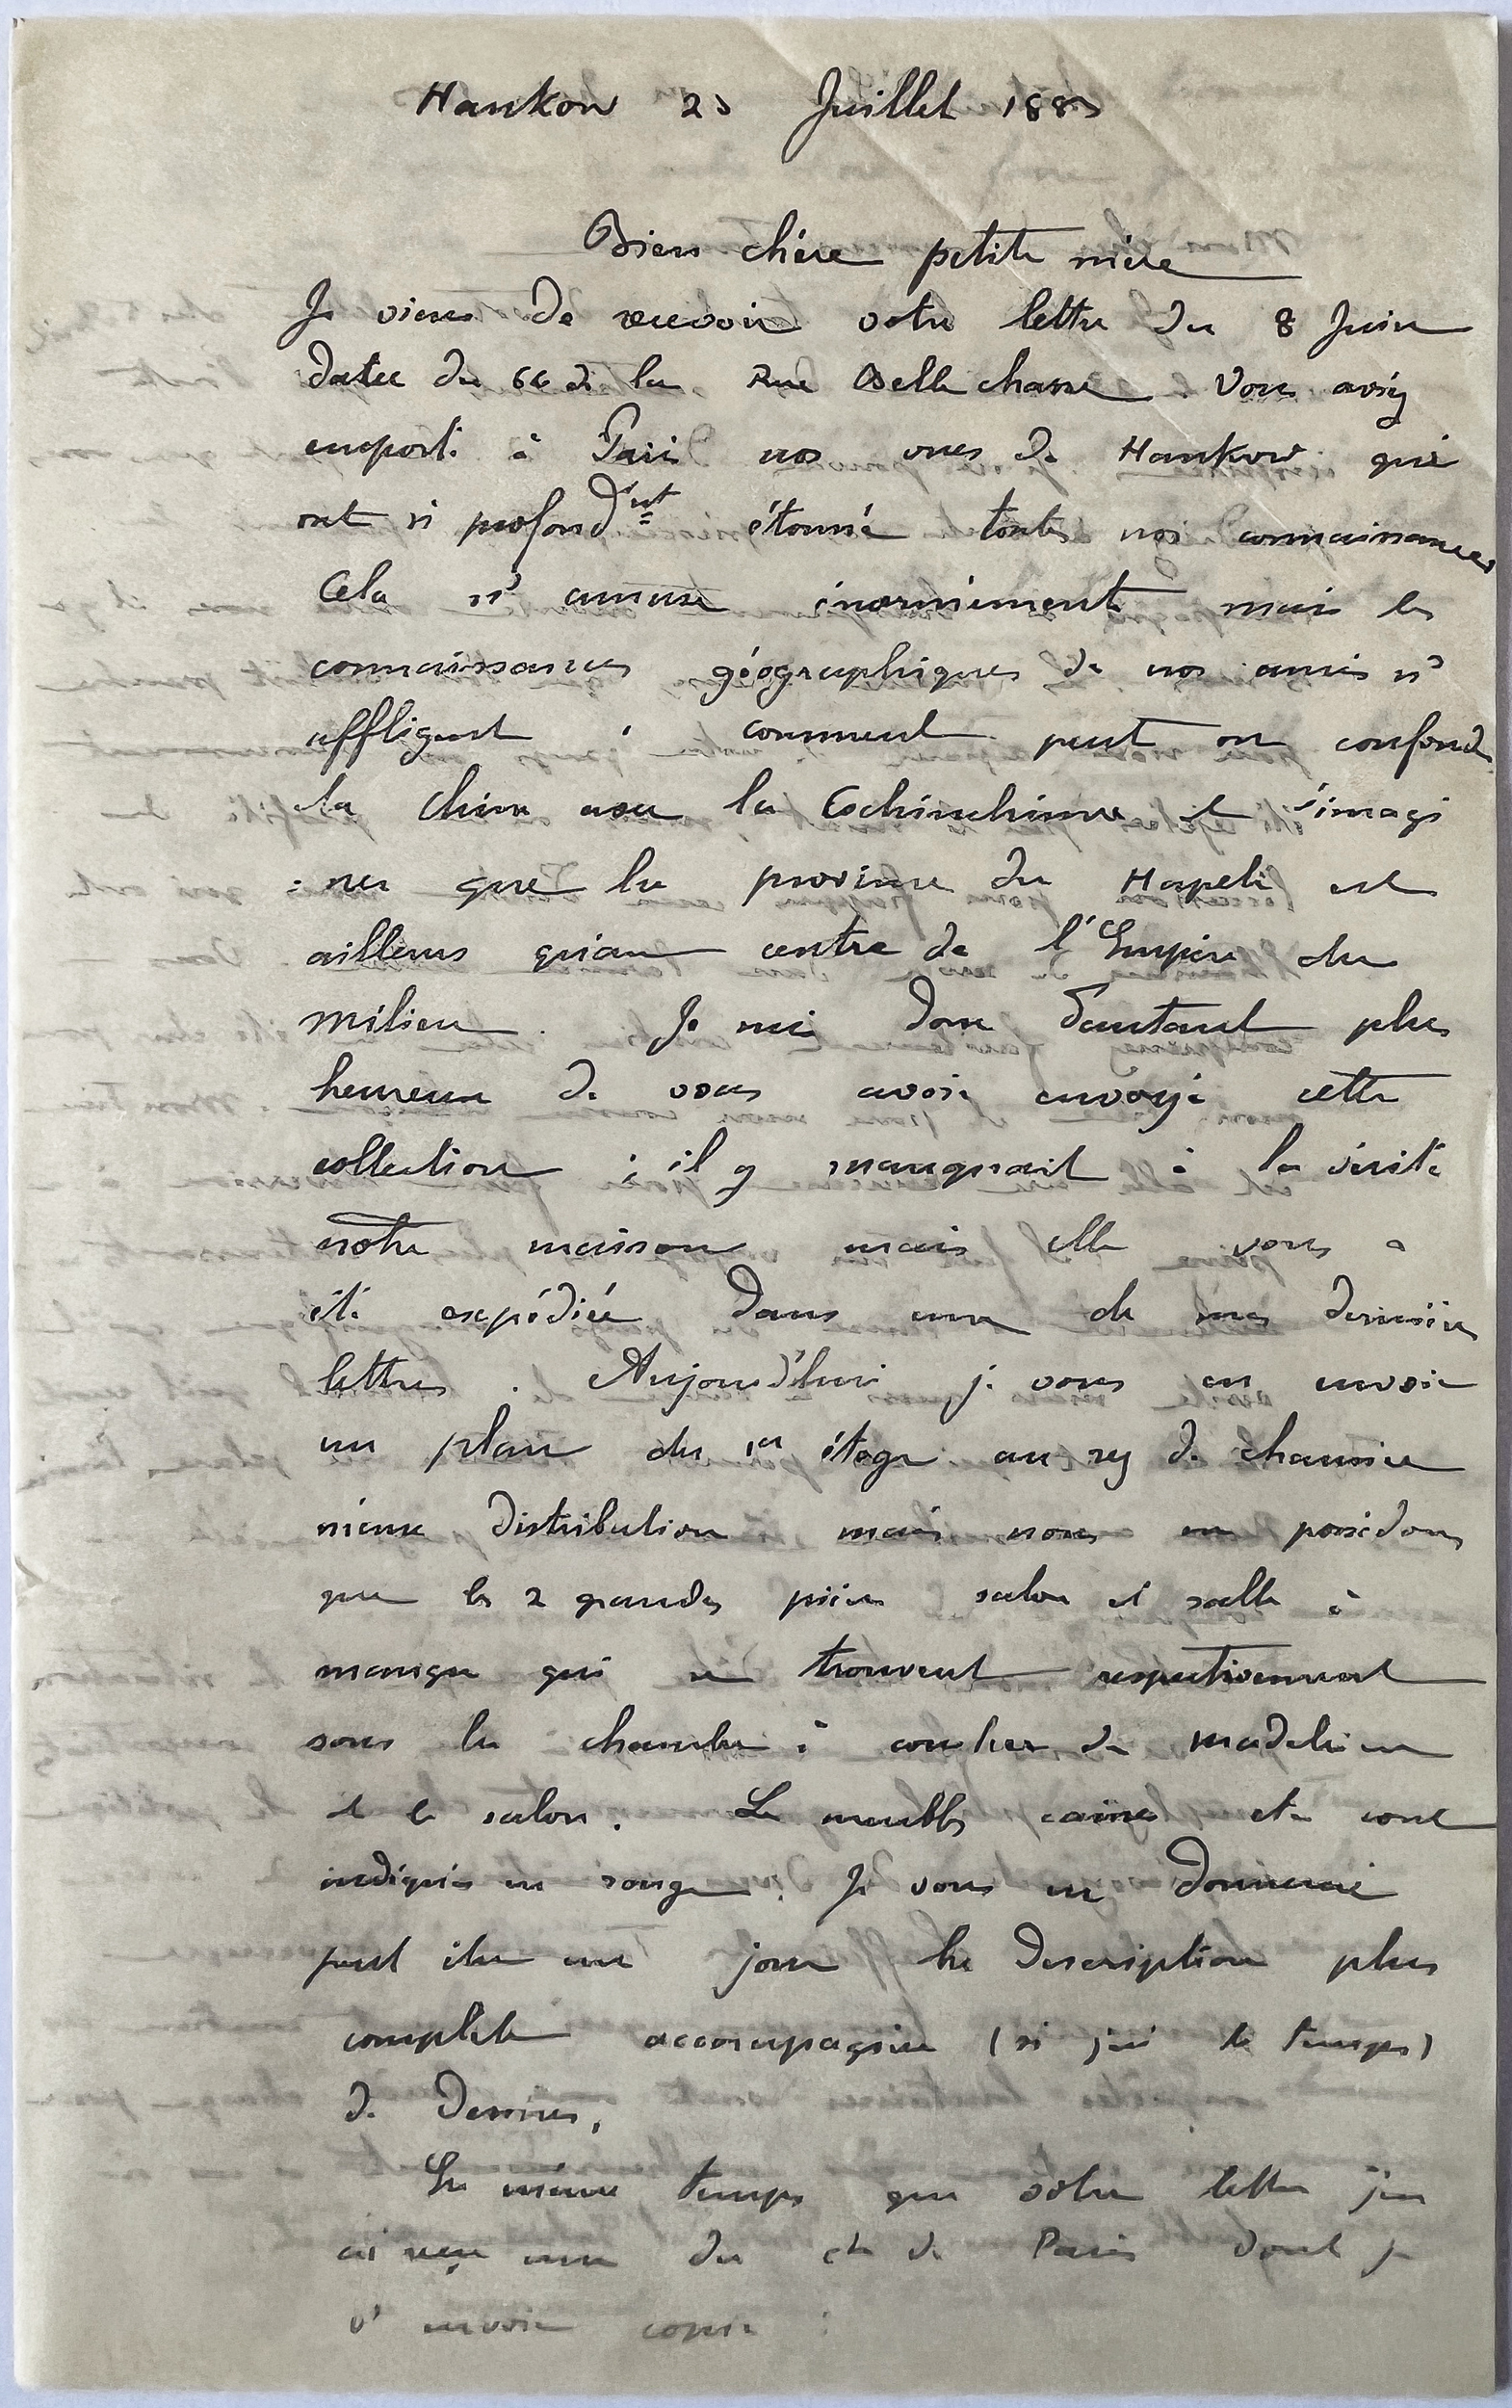 Hankow 23 Juillet 1883
Bien chère petite mère
Je viens de recevoir votre lettre du 8 Juin
datée du 66 de la Rue Bellechasse Vous aviez
emporté à Paris nos vues de Hankow qui
ont si profondᵐᵉⁿᵗ étonné toutes nos connaissances
Cela m'amuse énormément mais les
connaissances géographiques de nos amis m'
affligent : comment peut on confondre
la Chine avec la Cochinchine et s'imagi
: ner que la province du Houpeli est
ailleurs qu'au centre de l'Empire du
milieu. Je suis donc d'autant plus
heureux de vous avoir envoyé cette
collection ; il y manquait à la vérité
notre maison mais elle vous a
été expédiée dans une de mes dernières
lettres. Aujourd'hui je vous en envoie
un plan du 1er étage au rez de chaussée
même distribution mais nous ne possédons
que les 2 grandes pièces salon et salle à
manger qui se trouvent respectivement
sous la chambre à coucher de Madeleine
et le salon. Les meubles etc sont
indiqués en rouge. Je vous en donnerai
peut être un jour la description plus
complète accompagnée (si j'ai le temps)
de dessins.
En même temps que votre lettre j'en
ai reçu une du de Paris dont je
v' envoie copie :